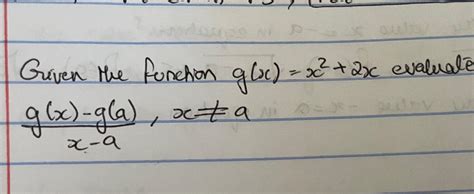 Given the function g(x) = x² + 2x evaluate
g(x)-g(a)/x-a , x ≠ a